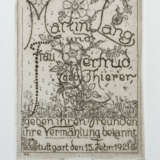 Martin Lang
und
Frau
Gertrud
geb. Thierer
geben ihren Freunden
ihre Vermählung bekannt
Stuttgart den 15. Febr. 1921